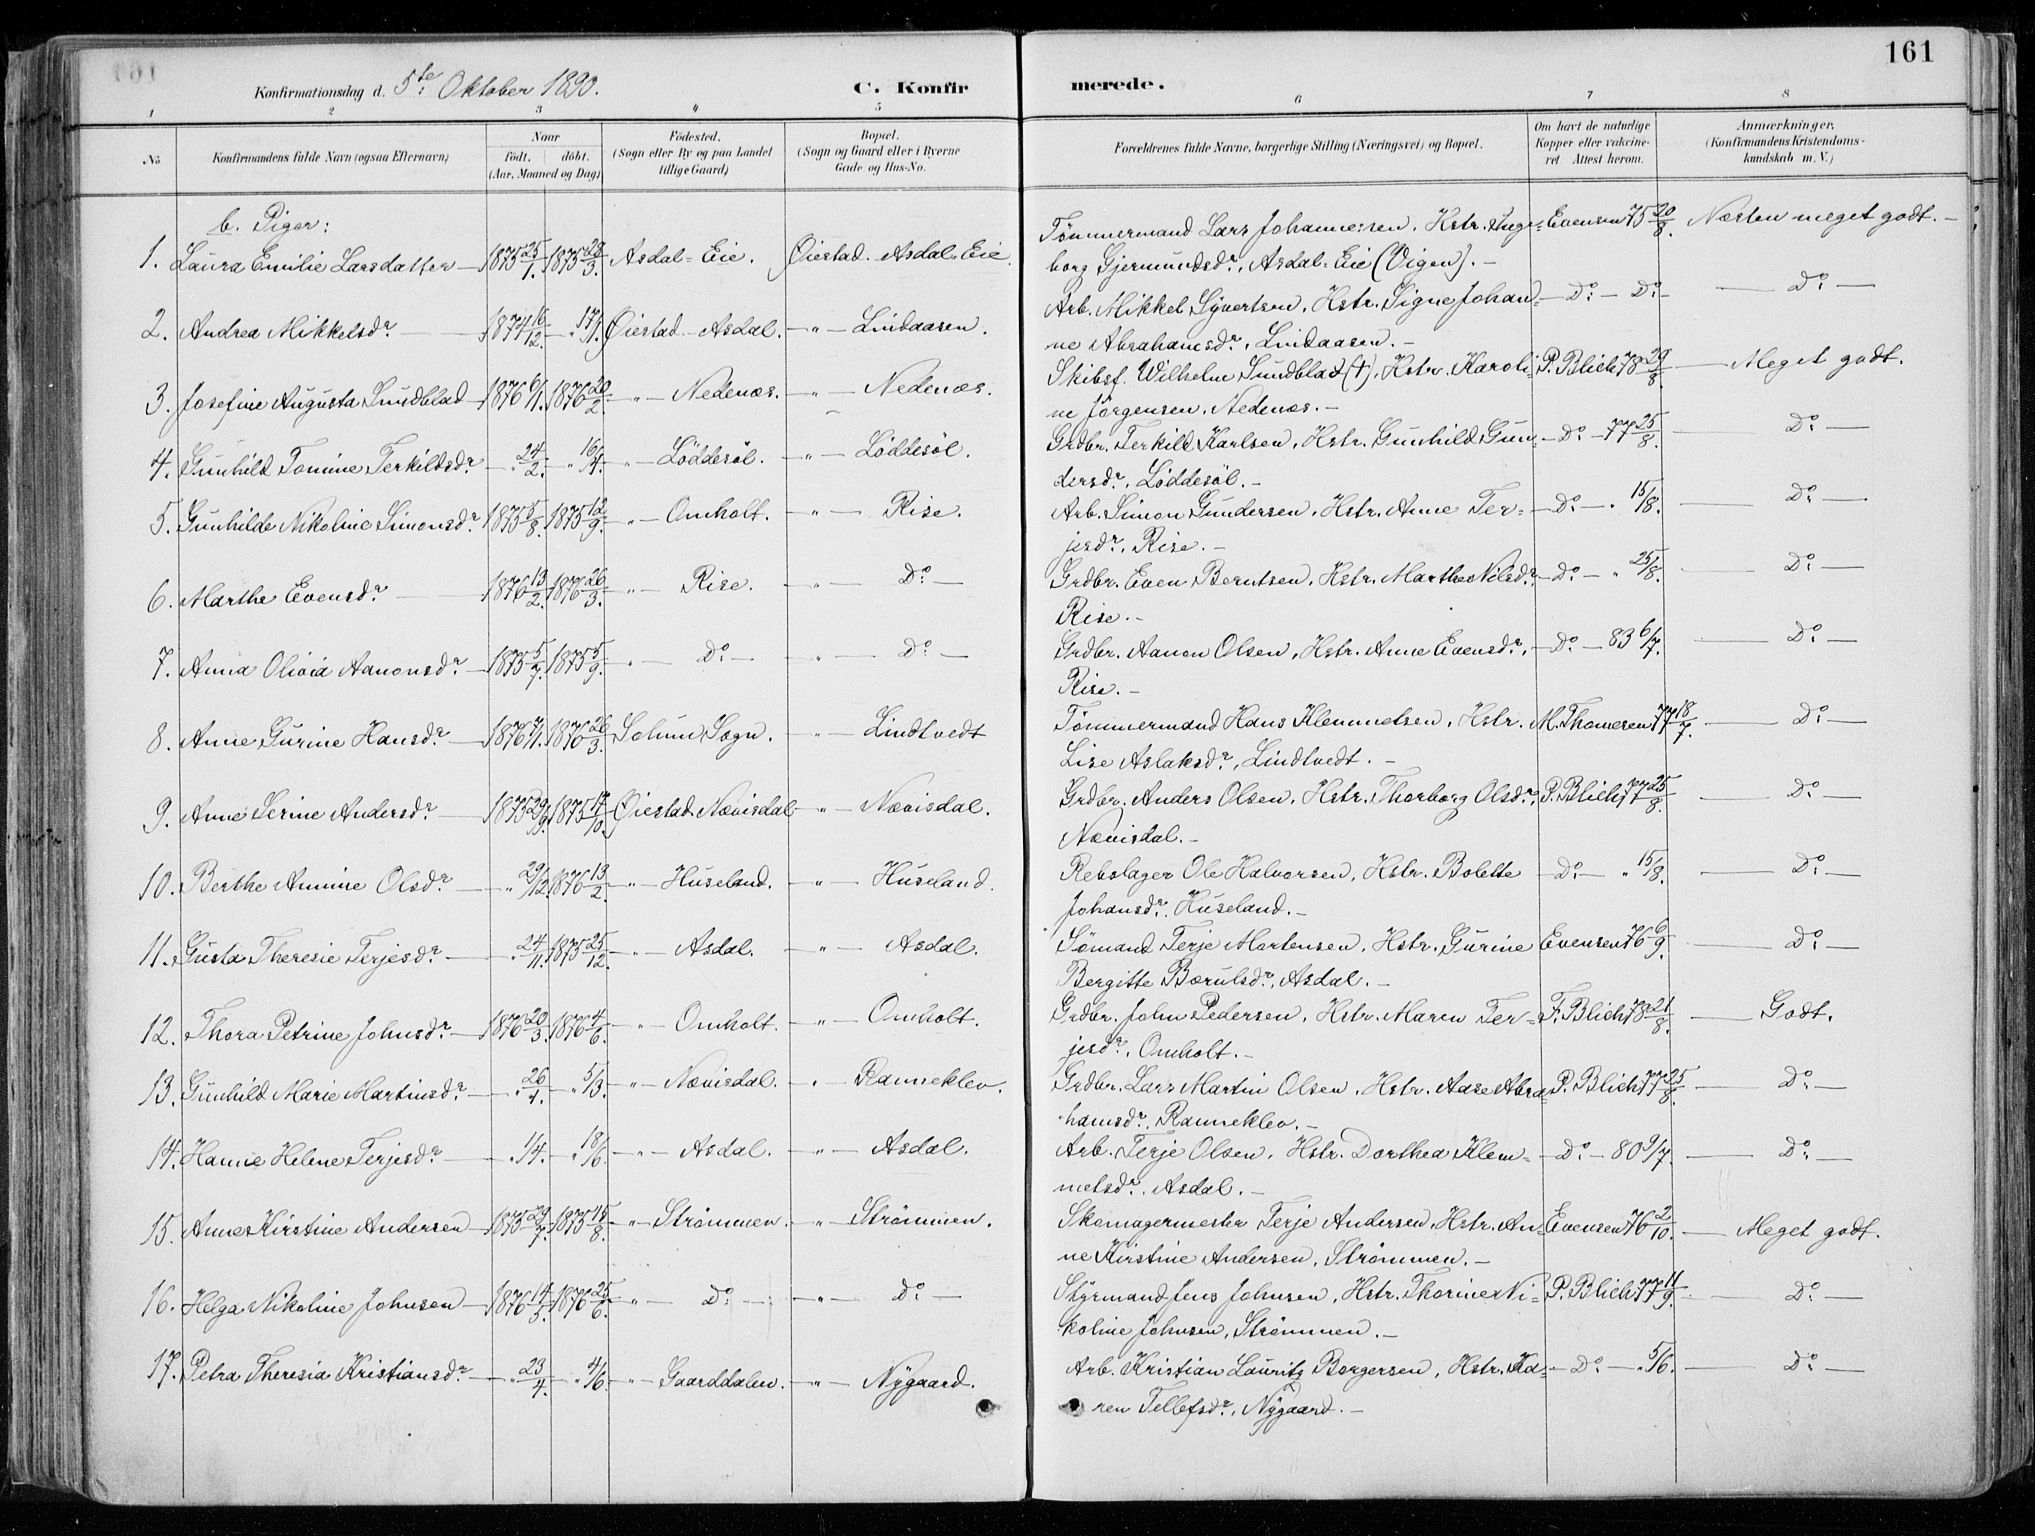 161
Konfirmationsdag d. 5te Oktober 1890. C. Konfirmerede.
1 2 3 4 5 6 7 8
No Konfirmandens fulde Navn (ogsaa Efternavn) Naar født, døbt. (Aar, Maaned og Dag) Fødested. (Sogn eller By og paa Landet tillige Gaard) Bopæl. (Sogn og Gaard eller i Byerne Gade og Hus-No. Forældrenes fulde Navne, borgerlige Stilling (Næringsvei) og Bopæl. Om havt de naturlige Kopper eller vakcineret Attest herom. Anmærkninger. (Konfirmandens Kristendomskundskab m. V.)
b. Piger:
1. Laura Emilie Larsdatter — 1875 25/1. 1875 28/3. Asdal-Eie. Øiestad. Asdal-Eie. Tømmermand Lars Johannessen, Hstr. Inge= Evensen 75 20/8. Næsten meget godt. —
borg Gjermundsdr., Asdal-Eie (Vigen). —
2. Andrea Mikkelsdr. — 1874 16/12. — " 17/1. Øiestad — Asdal. — " — Lindaasen. Arb. Mikkel Syvertsen, Hstr. Signe Johan= — Do. — Do. — — Do. —
ne Abrahamsdr., Lindaasen. —
3. Josefine Augusta Sundblad — 1876 6/1. 1876 20/2. — " — Nedenæs. — " — Nedenæs. Skibsf. Wilhelm Sundblad (†), Hstr. Karoli= P. Blich 78 29/8. — Meget godt.
ne Jørgensen, Nedenæs. —
4. Gunhild Tomine Terkildsdr. — " 24/2. — " 16/4. — " — Løddesøl. — " — Løddesøl. Grdbr. Terkild Karlsen, Hstr. Gunhild Gun= — Do. — 77 25/8. — Do. —
dersdr., Løddesøl. —
5. Gunhilde Nikoline Simonsdr. 1875 5/8. 1875 12/9. — " — Omholt. — " — Rise. Arb. Simon Gundersen, Hstr. Anne Ter= — Do. — " 15/8. — Do. —
jesdr., Rise. —
6. Marthe Evensdr. — 1876 13/2. 1876 26/3. — " — Rise. — " — Do. — Grdbr. Even Berntsen, Hstr. Marthe Nilsdr. — Do. — " 25/8. — Do. —
Rise. —
7. Anna Olivia Aanonsdr. — 1875 5/7. 1875 5/9. " — Do. — " — Do. — Grdbr. Aanon Olsen, Hstr. Anne Evensdr., — Do. — 83 6/7. — Do. —
Rise. —
8. Anne Gurine Hansdr. — 1876 7/1. 1876 26/3. Solum Sogn. — " — Lindtvedt Tømmermand Hans Klemmetsen, Hstr. M. Thomesen 77 18/7. — Do. —
Lise Aslaksdr., Lindtvedt. —
9. Anne Serine Andersdr. — 1875 29/9. 1875 17/10. Øiestad. Nævisdal — " — Nævisdal. Grdbr. Anders Olsen, Hstr. Thorborg Olsdr., P. Blich 77 25/8. — Do. —
Nævisdal. —
10. Berthe Amine Olsdr. — " 29/12. 1876 13/2. — " — Huseland. — " — Huseland. Rebslager Ole Halvorsen, Hstr. Bolette — Do. — " 15/8. — Do. —
Johansdr. Huseland. —
11. Gusta Theresie Terjesdr. — " 24/11. 1875 25/12. — " — Asdal. — " — Asdal. Sømand Terje Mortensen, Hstr. Gurine Evensen 76 6/9. — Do. —
Bergitte Bærulsdr., Asdal. —
12. Thora Petrine Johnsdr. — 1876 20/3. 1876 4/6. — " — Omholt. — " — Omholt. Grdbr. John Pedersen, Hstr. Maren Ter= F. Blich 78 21/8. — Godt.
jesdr., Omholt. —
13. Gunhild Marie Martinsdr. — " 26/1. — " 5/3. — " — Nævisdal. — " Ranneklev. Grdbr. Lars Martin Olsen, Hstr. Aase Abra= P. Blich 77 25/8. — Do. —
hamsdr., Ranneklev. —
14. Hanne Helene Terjesdr. — " 1/4. — " 18/6. — " — Asdal. — " — Asdal. Arb. Terje Olsen, Hstr. Dorthea Klem= — Do. — 80 9/7. — Do. —
metsdr., Asdal. —
15. Anne Kirstine Andersen — 1875 29/7. 1875 15/8. — " — Strømmen. — " — Strømmen. Skomagermester Terje Andersen, Hstr. An= Evensen 76 2/10. — Meget godt.
ne Kirstine Andersen, Strømmen. —
16. Helga Nikoline Johnsen — 1876 14/5. 1876 25/6. — " — Do. — — " — Do. — Styrmand Jens Johnsen, Hstr. Thorine Ni= P. Blich 77 11/9. — Do. —
koline Johnsen, Strømmen. —
17. Petra Theresia Kristiansdr. — " 23/4. — " 4/6. — " — Gaarddalen. — " — Nygaard. Arb. Kristian Lauritz Borgersen, Hstr. Ka= — Do. — " 5/6. — Do. —
ren Tellefsdr., Nygaard. —